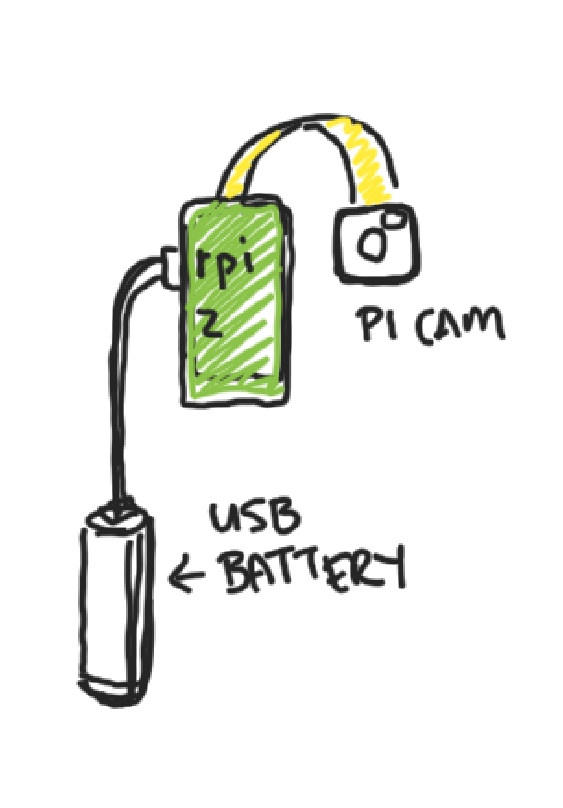 rpi
z
PI CAM
USB
← BATTERY